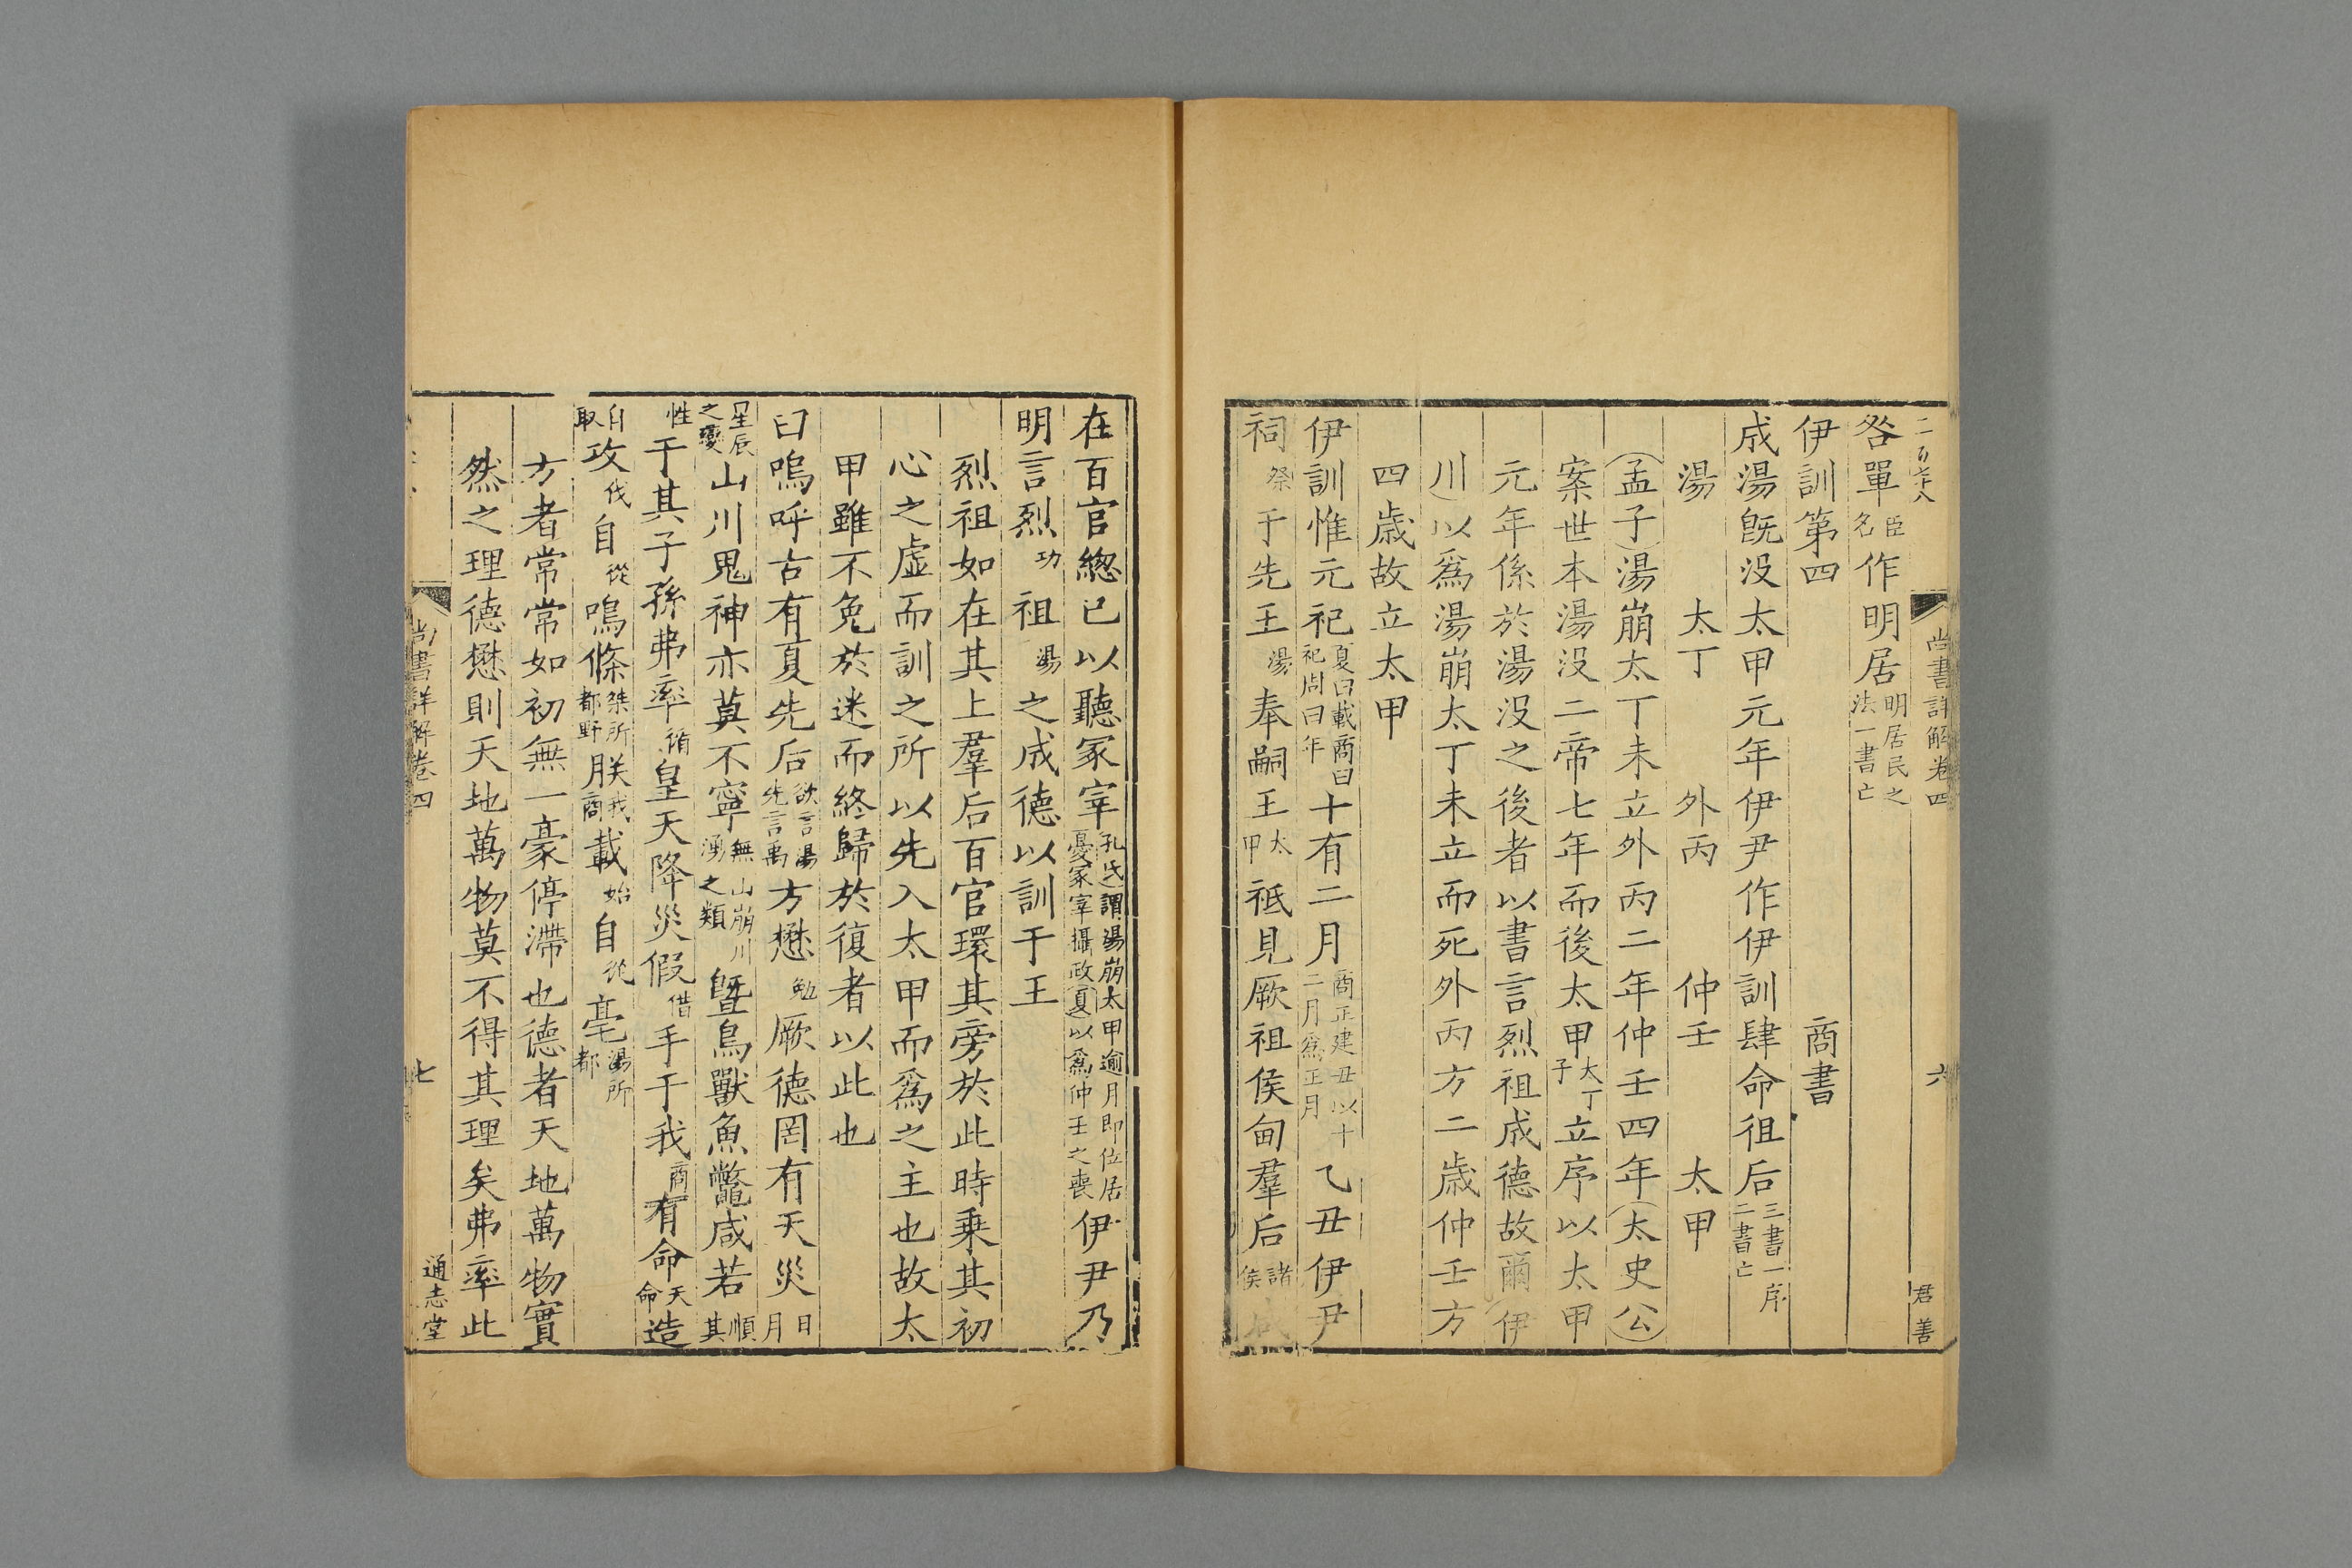 二百七十八 尚書詳解卷四 六 君善
咎單臣名作明居明居民之法一書亡
伊訓第四 商書
成湯旣没太甲元年伊尹作伊訓肆命徂后三書一序二書亡
湯 太丁 外丙 仲壬 太甲
孟子湯崩太丁未立外丙二年仲壬四年太史公
案世本湯没二帝七年而後太甲太丁子立序以太甲
元年係於湯没之後者以書言烈祖成德故爾伊
川以爲湯崩太丁未立而死外丙方二歳仲壬方
四歳故立太甲
伊訓惟元祀夏曰載商曰祀周曰年十有二月商正建丑以十二月爲正月乙丑伊尹
祠祭于先王湯奉嗣王太甲祗見厥祖侯甸羣后諸侯咸
在百官緫已以聽冢宰孔氏謂湯崩太甲逾月即位居憂冢宰攝政夏以爲仲壬之喪伊尹乃
明言烈功祖湯之成德以訓于王
烈祖如在其上羣后百官環其旁於此時乗其初
心之虚而訓之所以先入太甲而爲之主也故太
甲雖不免於迷而終歸於復者以此也
曰嗚呼古有夏先后欲言湯先言禹方懋勉厥德罔有天災日月
星辰之變山川鬼神亦莫不寧無山崩川湧之類曁鳥獸魚鼈咸若順其
性于其子孫弗率循皇天降災假借手于我商有命天命造
自取攻伐自從鳴條桀所都野朕我商載始自從亳湯所都
方者常常如初無一豪停滯也德者天地萬物實
然之理德懋則天地萬物莫不得其理矣弗率此
尚書詳解卷四 七 通志堂